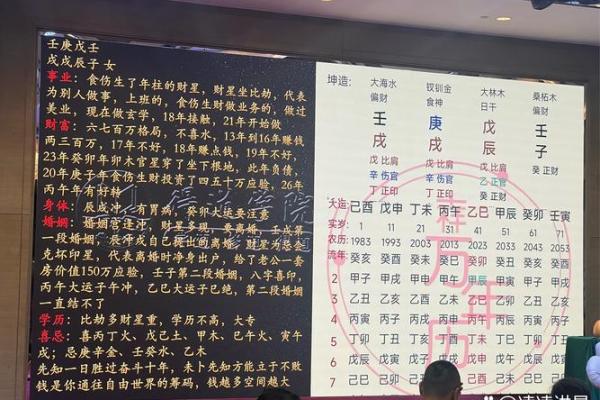 壬庚戊壬
戌戌辰子 女
事业：食伤生了年柱的财星，财星坐比劫，代表
为别人做事，上班的，食伤生财做业务的，做过
美业，现在做玄学，18年接触，21年开始做
财富：六七百万格局，不喜水，13年到16年赚钱
两三百万，17年不好，18年赚点钱，19年不好，
23年癸卯年卯木官星穿了坐下根地，此年负债，
20年庚子年食伤生财投资了四五十万应验，26年
丙午年有好转
身体：辰戌冲，有胃病，癸卯大运要注重
婚姻：婚姻宫逢冲，财星多现，要离婚，壬戌第
一段婚姻，辰冲戌自己提出的离婚，财星为忌
克坏印星，代表离婚时净身出户，给了老公一套
房价值150万应验，壬子第二段婚姻，八字喜印，
丙午大运子午冲，乙巳大运子巳绝，第二段婚姻
一直结不了
学历：比劫多财星重，学历不高，大专
喜忌：喜丙丁火、戊己土、甲木、巳午火、寅午
戌；忌庚辛金、壬癸水、乙木
先知一日胜过奋斗十年，未卜先知方能立于不败
钱是你通往自由世界的筹码，钱越多空间越大
坤造： 大海水 钗钏金 大林木 桑柘木
偏财 食神 日干 偏财
壬 庚 戊 壬
戌 戌 辰 子
戊 比肩 戊 比肩 戊 比肩 癸 正财
辛 伤官 辛 伤官 乙 正官
丁 正印 丁 正印 癸 正财
大运： 己酉 戊申 丁未 丙午 乙巳 甲辰 癸卯 壬寅
实岁： 1 11 21 31 41 51 61 71
农历： 1983 1993 2003 2013 2023 2033 2043 2053
流年： 癸亥 癸酉 癸未 癸巳 癸卯 癸丑 癸亥 癸酉
2 甲子 甲戌 甲申 甲午 甲辰 甲寅 甲子 甲戌
3 乙丑 乙亥 乙酉 乙未 乙巳 乙卯 乙丑 乙亥
4 丙寅 丙子 丙戌 丙申 丙午 丙辰 丙寅 丙子
5 丁卯 丁丑 丁亥 丁酉 丁未 丁巳 丁卯 丁丑
6 戊辰 戊寅 戊子 戊戌 戊申 戊午 戊辰 戊寅
7 己巳 己卯 己丑 己亥 己酉 己未 己巳 己卯